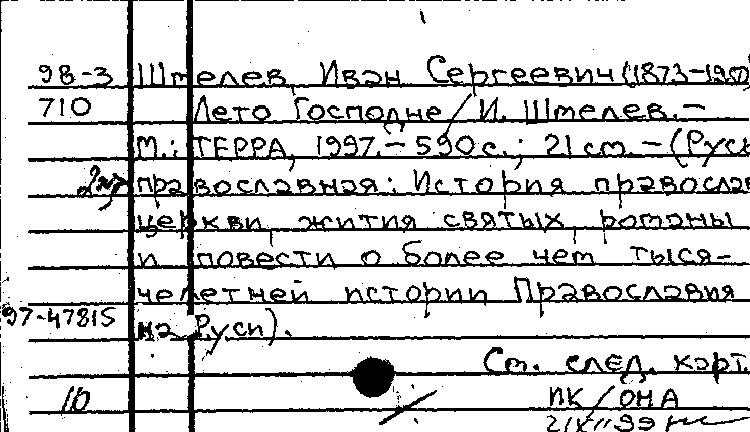 98-3 Шмелев, Иван Сергеевич (1873-1950)
710 Лето Господне / И. Шмелев. -
М.: ТЕРРА, 1997. - 590 с.; 21 см. - (Русь
православная: История правосла
церкви, жития святых, романы
и повести о более чем тыся-
челетней истории Православия
97-47815 на Руси).
См. след. карт.
10 ПК/ОНА